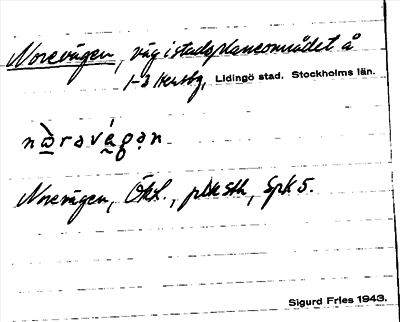 Norevägen, väg i stadsplaneområdet å
Lidingö stad. Stockholms län.
nòravä́gən
Norevägen, Ökl., plk Sth, Spk 5.
Sigurd Fries 1943.